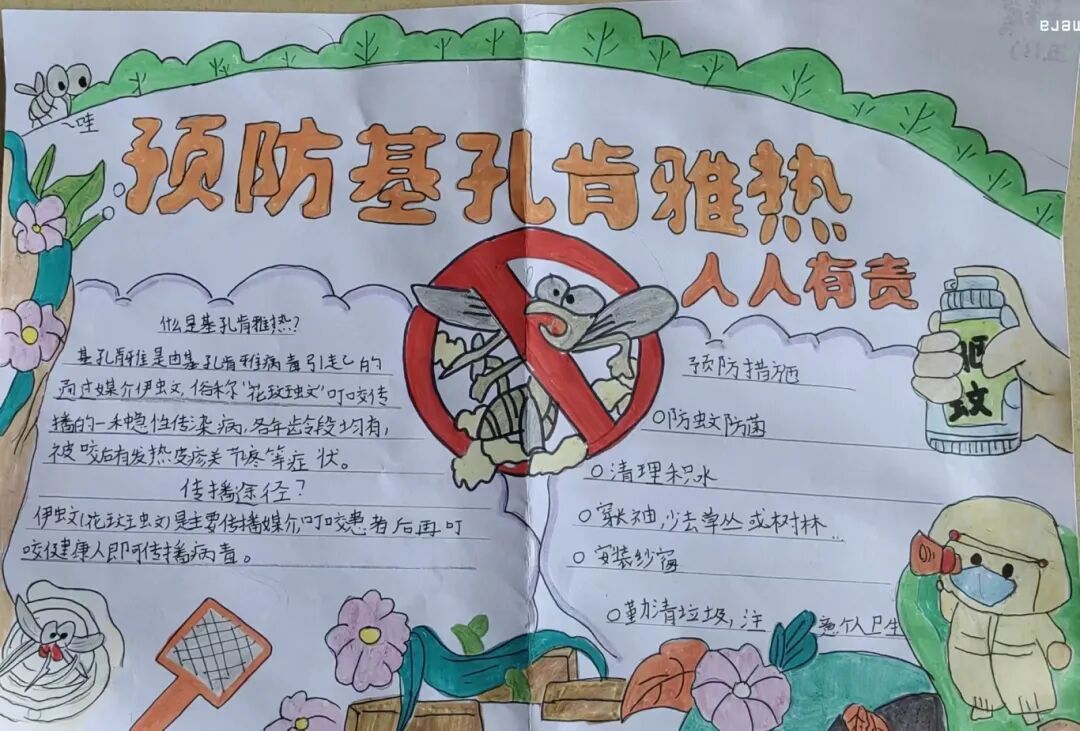 哇
预防基孔肯雅热
人人有责
什么是基孔肯雅热?
基孔肯雅是由基孔肯雅病毒引起的
通过媒介伊蚊,俗称"花斑蚊"叮咬传
播的一种急性传染病,各年龄段均有,
被咬后有发热皮疹关节疼等症状。
传播途径?
伊蚊(花斑蚊)是主要传播媒介,叮咬患者后再叮
咬健康人即可传播病毒。
预防措施
防蚊防菌
清理积水
穿长袖,少去草丛或树林...
安装纱窗
勤清垃圾,注意个人卫生
驱蚊